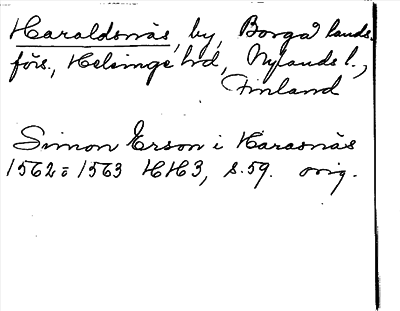 Haraldsnäs, by, Borgå lands.
förs., Helsinge hd, Nylands l.,
Finland
Simon Erson i Harasnäs
1562 o 1563 HH3, s. 59. orig.